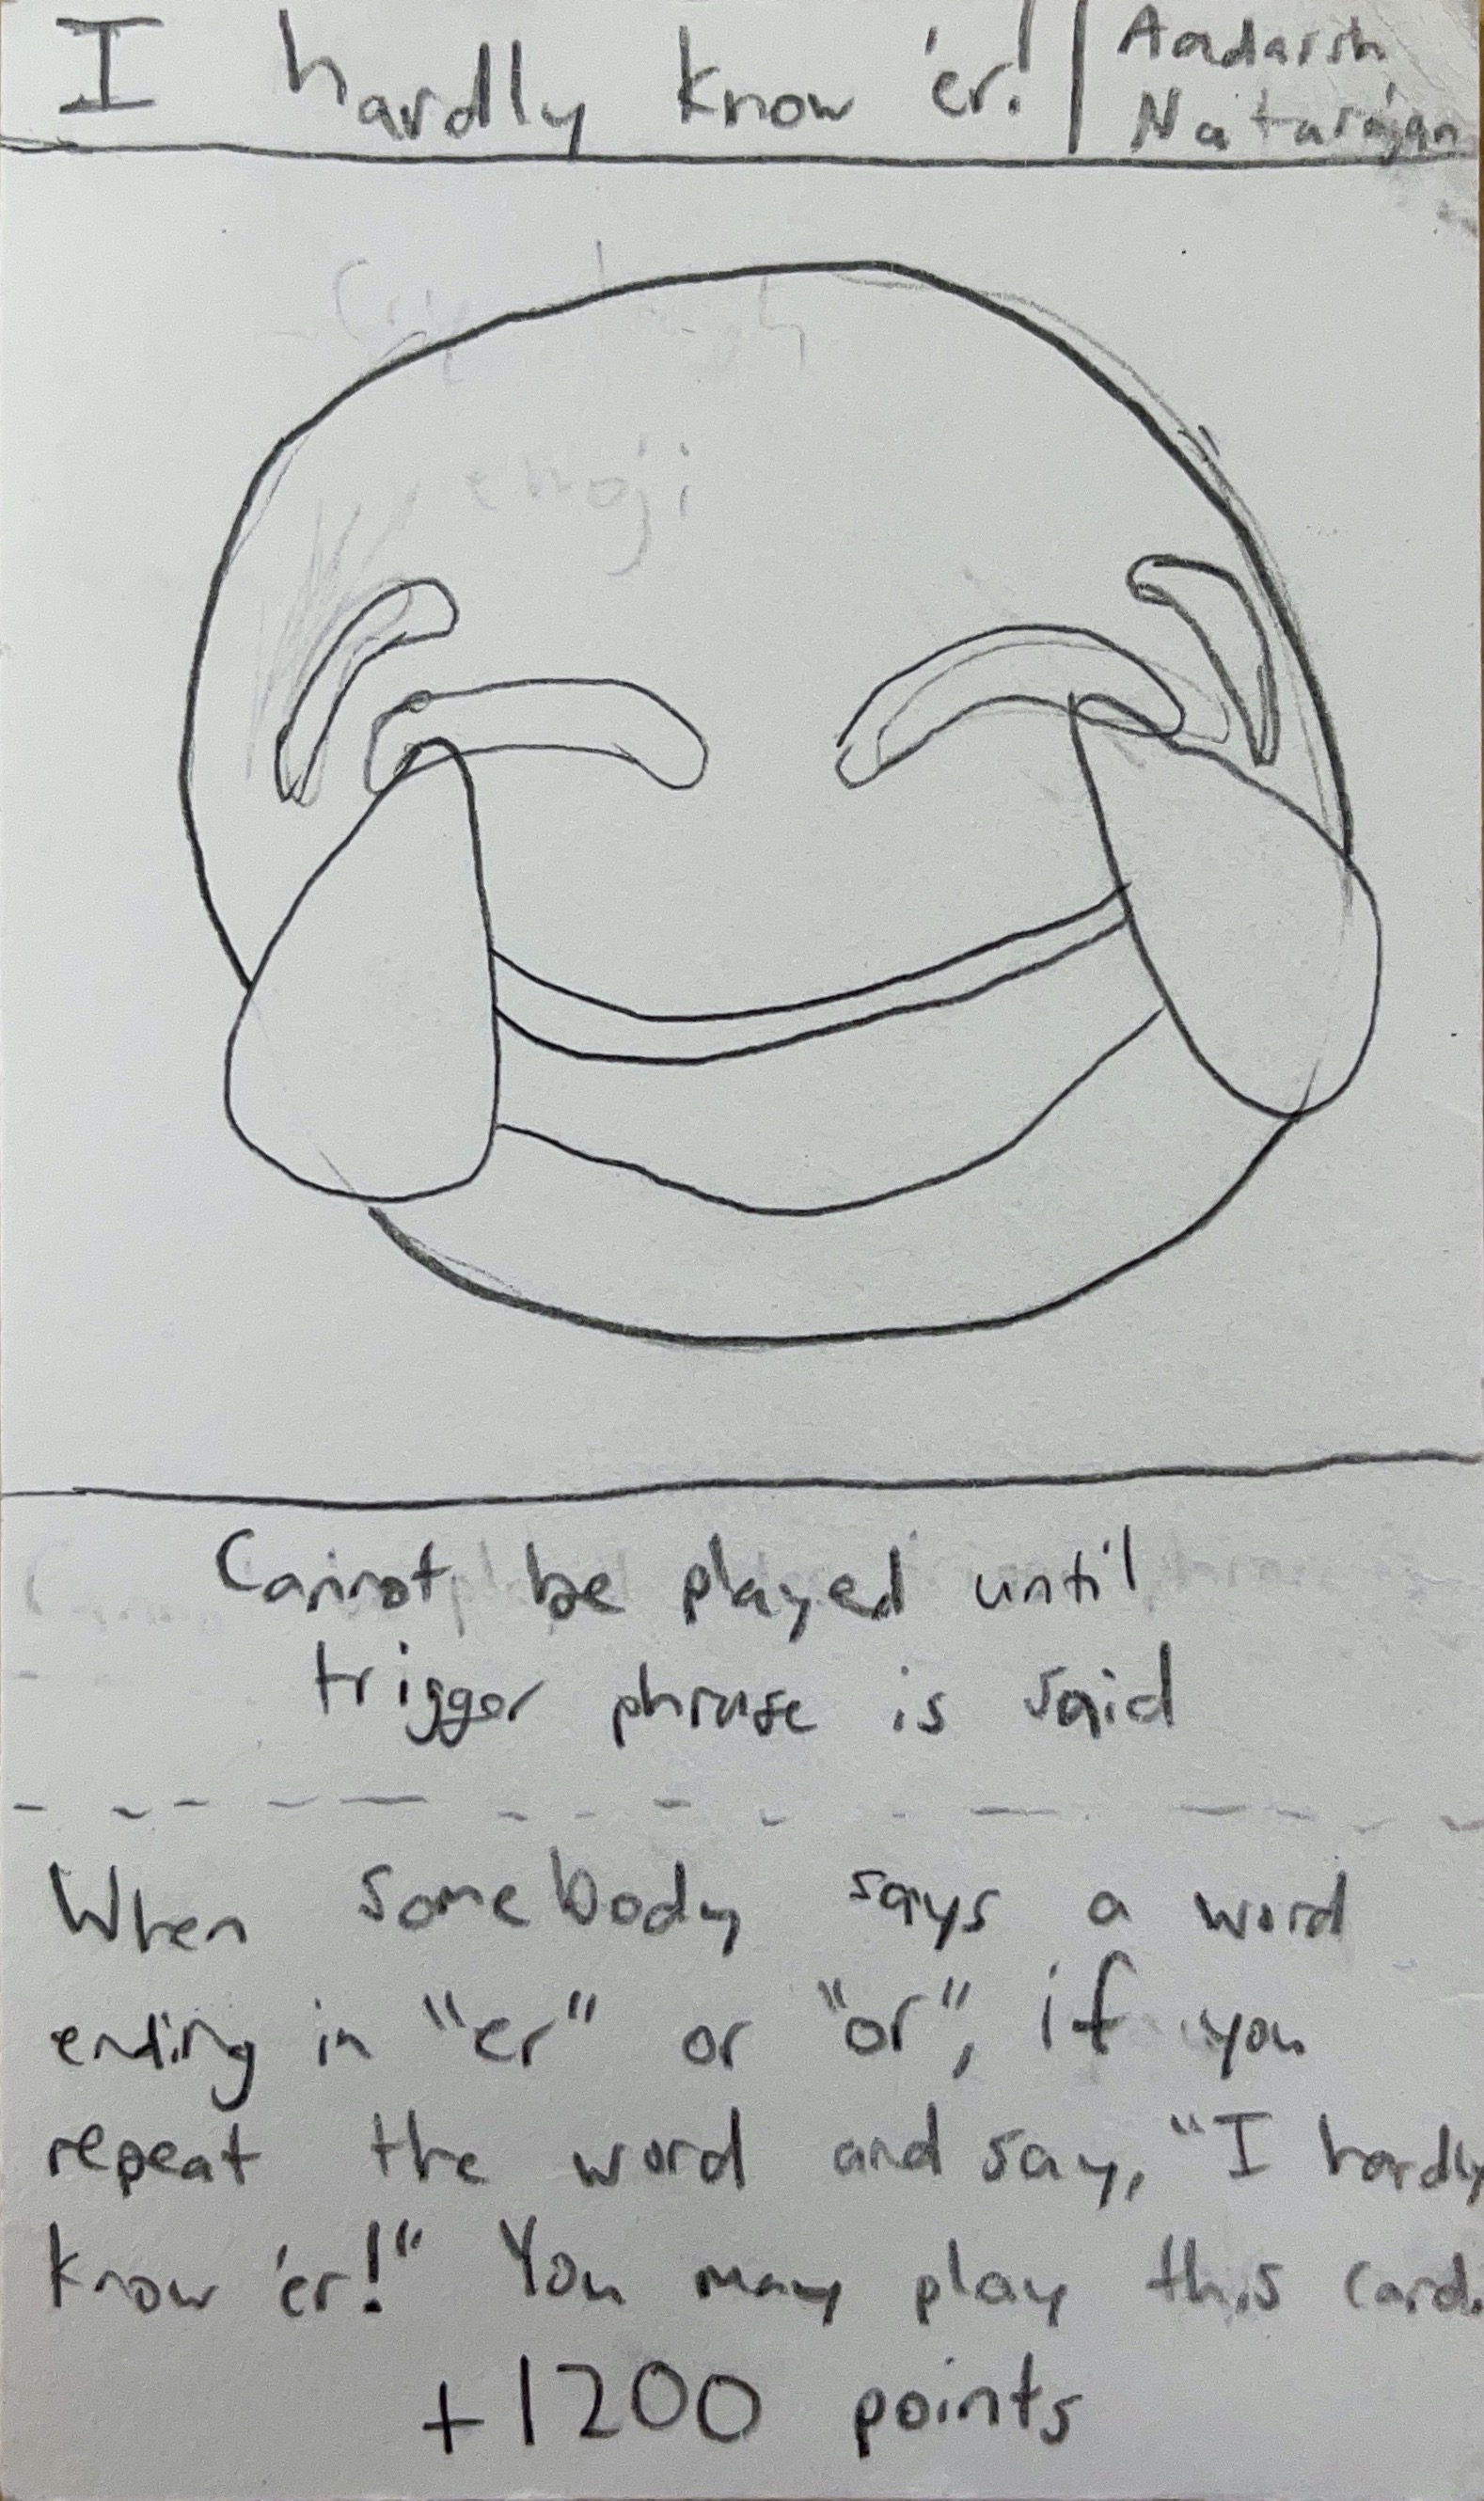 I hardly know 'er!
Aadarsh
Natarajan
emoji
Cannot be played until
trigger phrase is said
When somebody says a word
ending in "er" or "or", if you
repeat the word and say, "I hardly
know 'er!" You may play this card.
+1200 points